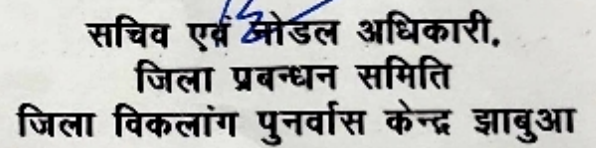 सचिव एवं नोडल अधिकारी,
जिला प्रबन्धन समिति
जिला विकलांग पुनर्वास केन्द्र झाबुआ